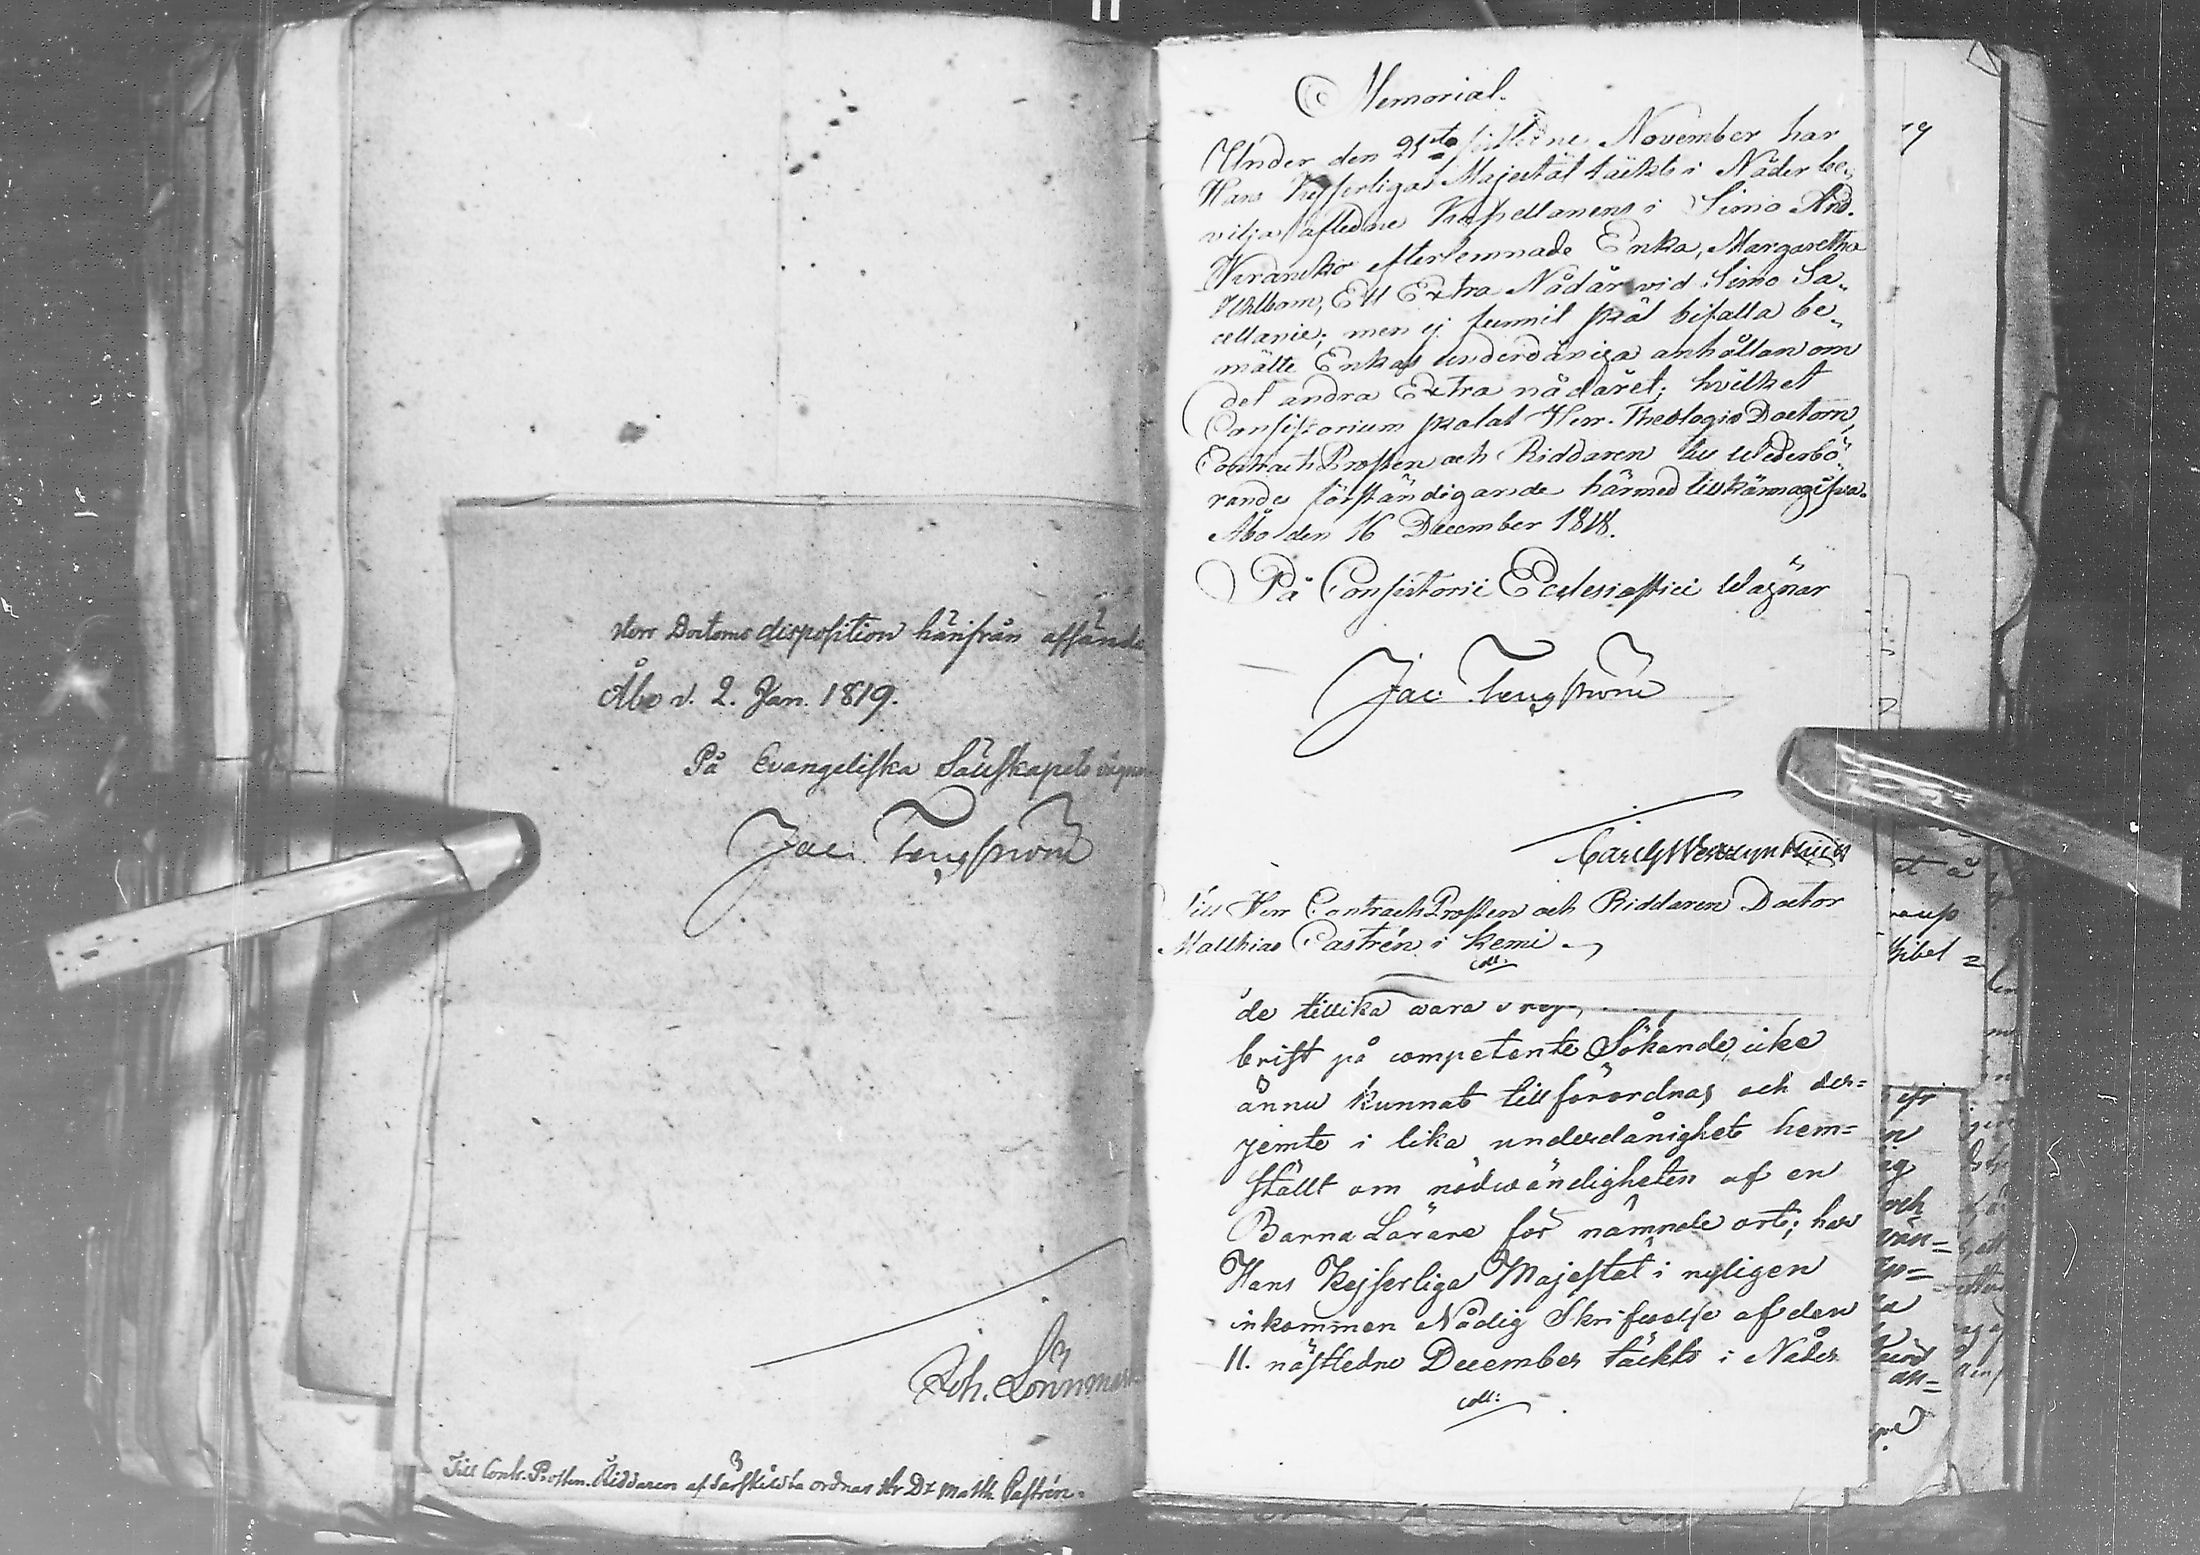 Herr Doctorns disposition härifrån afsända
Åbo d. 2. Jan. 1819.
På Evangeliska Sällskapets vägnar
Jac. Tengström
Joh. Lönnmark
Till Contr. Prosten. Riddaren af Särskildta ordnar Hr Dr Matth Castrén.
Memorial.
Under den 21sta sistledne November har
Hans Kejserliga Majestät täckts i Nåder be-
vilja afledne Kapellanens i Simo And.
Weranders efterlemnade Enka, Margaretha
Uhlbom, Ett Extra Nådår vid Simo Sa-
cellanie; men ej funnit skäl bifalla be-
mälte Enkas underdåniga anhållan om
det andra Extra nådåret; hvilket
Consistorium skolat Herr Theologie Doctorn,
Contracts Prosten och Riddaren till wederbö-
randes förständigande härmed tillkännagifva.
Åbo den 16 December 1818.
På Consistorii Ecclesiastici Wägnar
Jac. Tengström
Till Herr Contracts Prosten och Riddaren Doctor
Matthias Castrén i Kemi.
coll.
de tillika wara
brist på competente Sökande, icke
ännu kunnat tillförordnas och der-
jemte i lika underdånighet hem-
stält om nödwändigheten af en
Barna Lärare för nämnde ort; har
Hans Kejserliga Majestät i nyligen
inkommen Nådig Skrifwelse af den
11. nästledne December täckts i Nåder
coll: